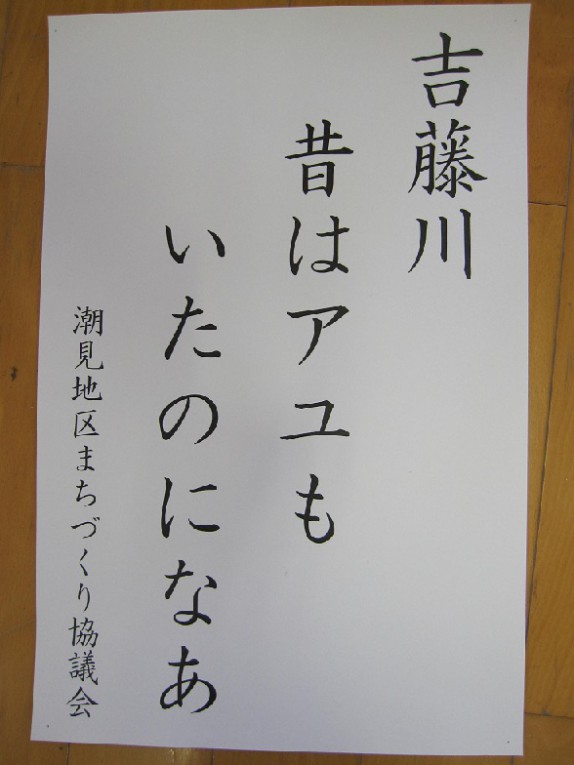 吉藤川
昔はアユも
いたのになあ
潮見地区まちづくり協議会